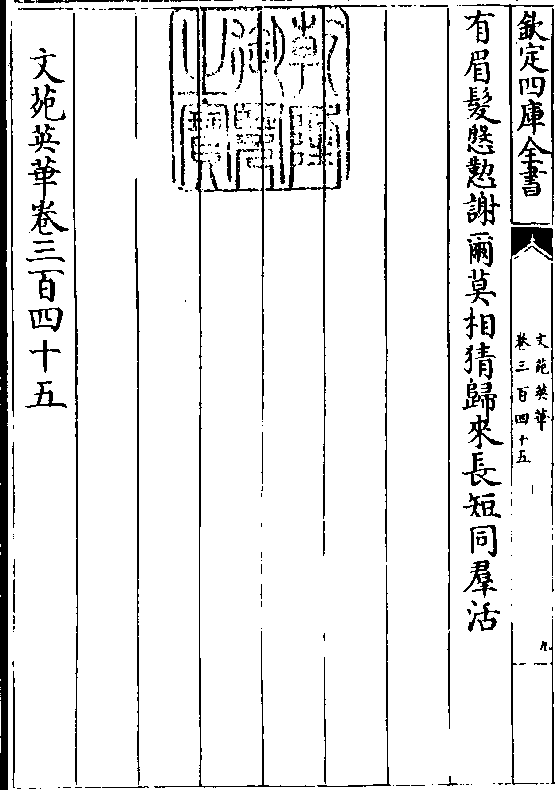 欽定四庫全書
文苑英華
卷三百四十五
九
有眉髮慇懃謝爾莫相猜歸來長短同羣活
乾隆御覽之寶
文苑英華卷三百四十五